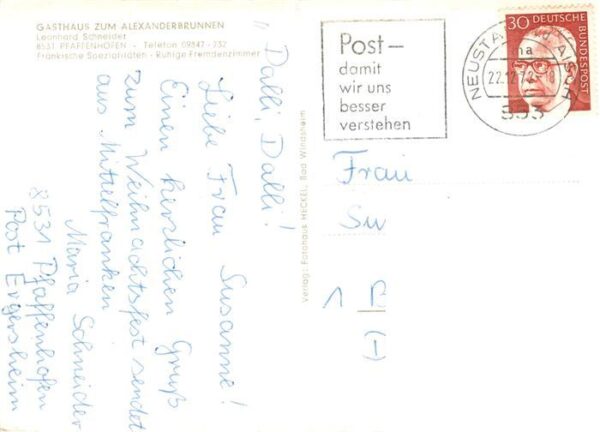 GASTHAUS ZUM ALEXANDERBRUNNEN
Leonhard Schneider
8531 PFAFFENHOFEN - Telefon 09847-232
Fränkische Spezialitäten - Ruhige Fremdenzimmer
"Dalli, Dalli!
Liebe Frau Susanne!
Einen herzlichen Gruß
zum Weihnachtsfest sendet
aus "Mittelfranken
Maria Schneider
8531 Pfaffenhofen
Post Ergersheim
Verlag: Fotohaus HECKEL, Bad Windsheim
Post-
damit
wir uns
besser
verstehen
NEUSTADT AISCH
ma
22.12.72-18
853
30 DEUTSCHE
BUNDESPOST
Frau
Su
1 B
(-)